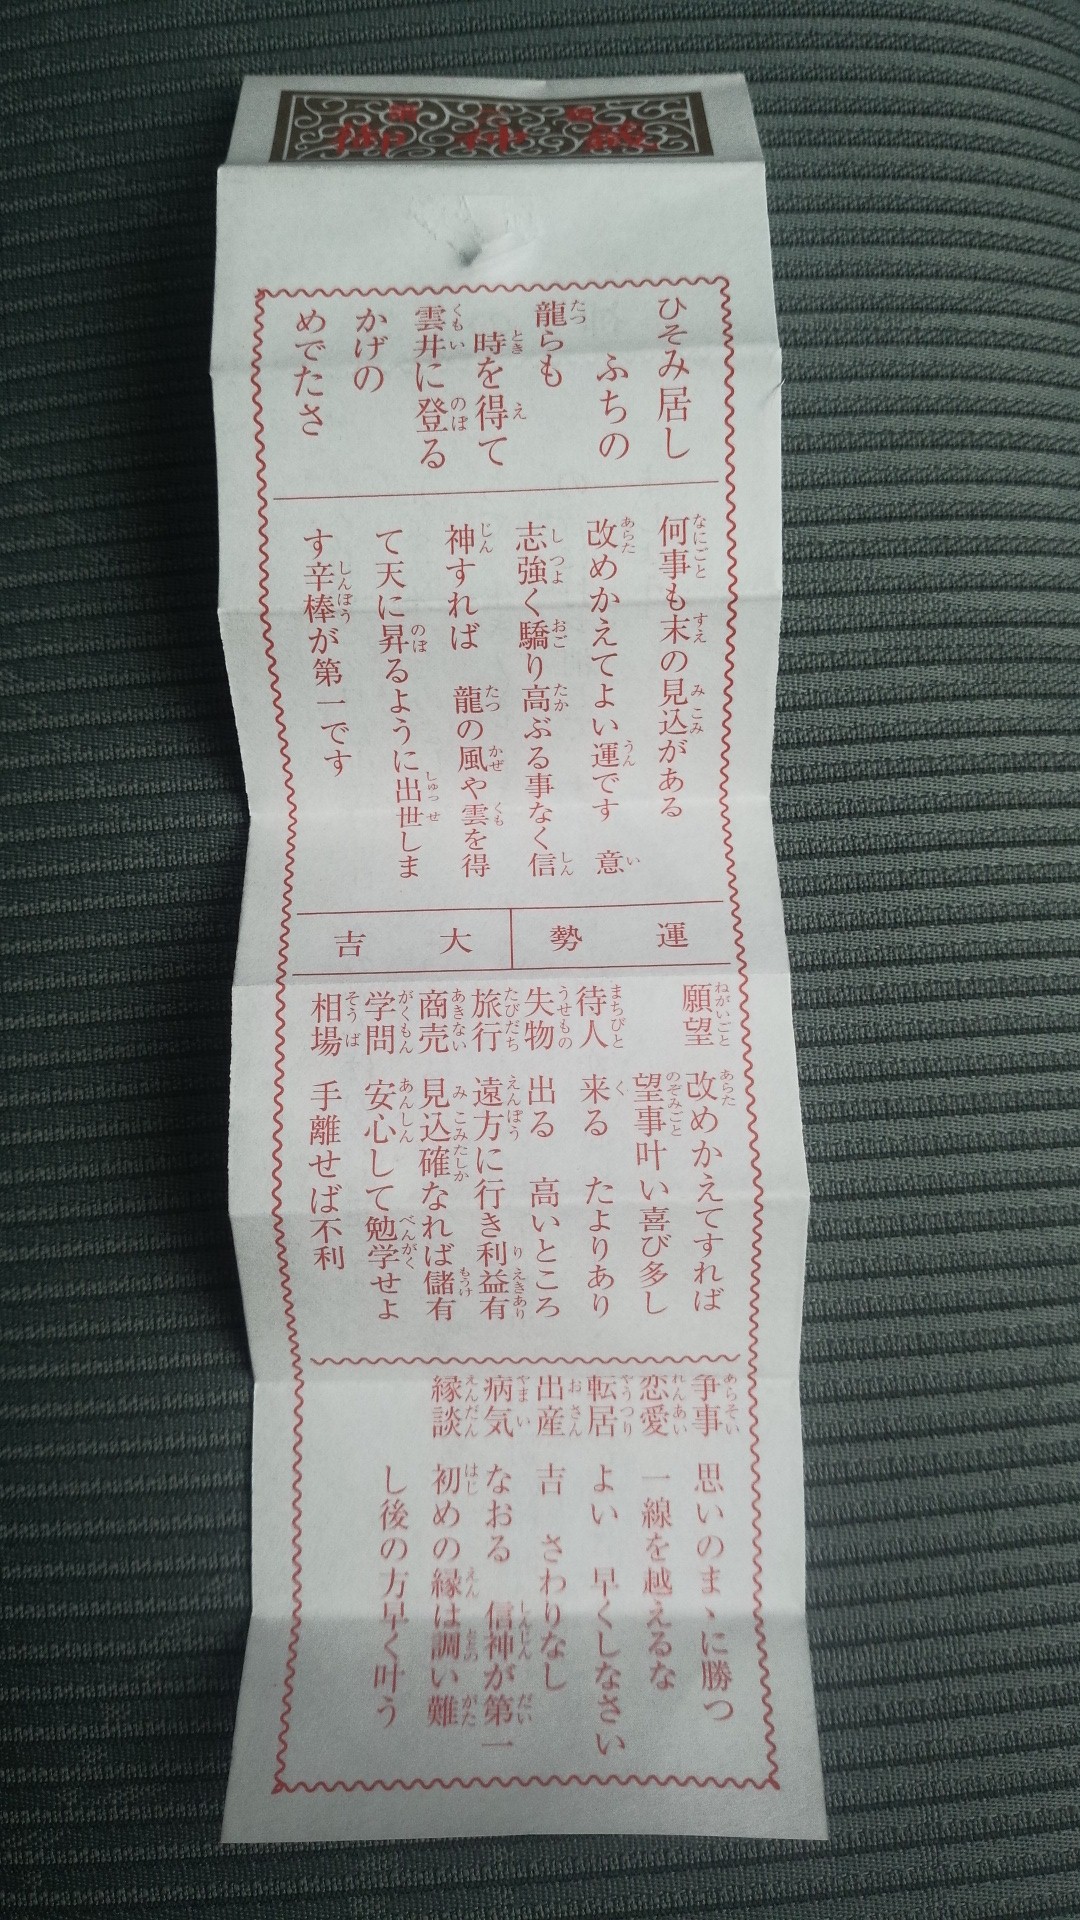 御神籤
ひそみ居し
ふちの
龍らも
時を得て
雲井に登る
かげの
めでたさ
何事も末の見込がある
改めかえてよい運です　意
志強く驕り高ぶる事なく信
神すれば　龍の風や雲を得
て天に昇るように出世しま
す辛棒が第一です
運勢　大吉
願望　改めかえてすれば
望事叶い喜び多し
待人　来る　たよりあり
失物　出る　高いところ
旅行　遠方に行き利益有
商売　見込確なれば儲有
学問　安心して勉学せよ
相場　手離せば不利
争事　思いのまゝに勝つ
恋愛　一線を越えるな
転居　よい　早くしなさい
出産　吉　さわりなし
病気　なおる　信神が第一
縁談　初めの縁は調い難
し後の方早く叶う